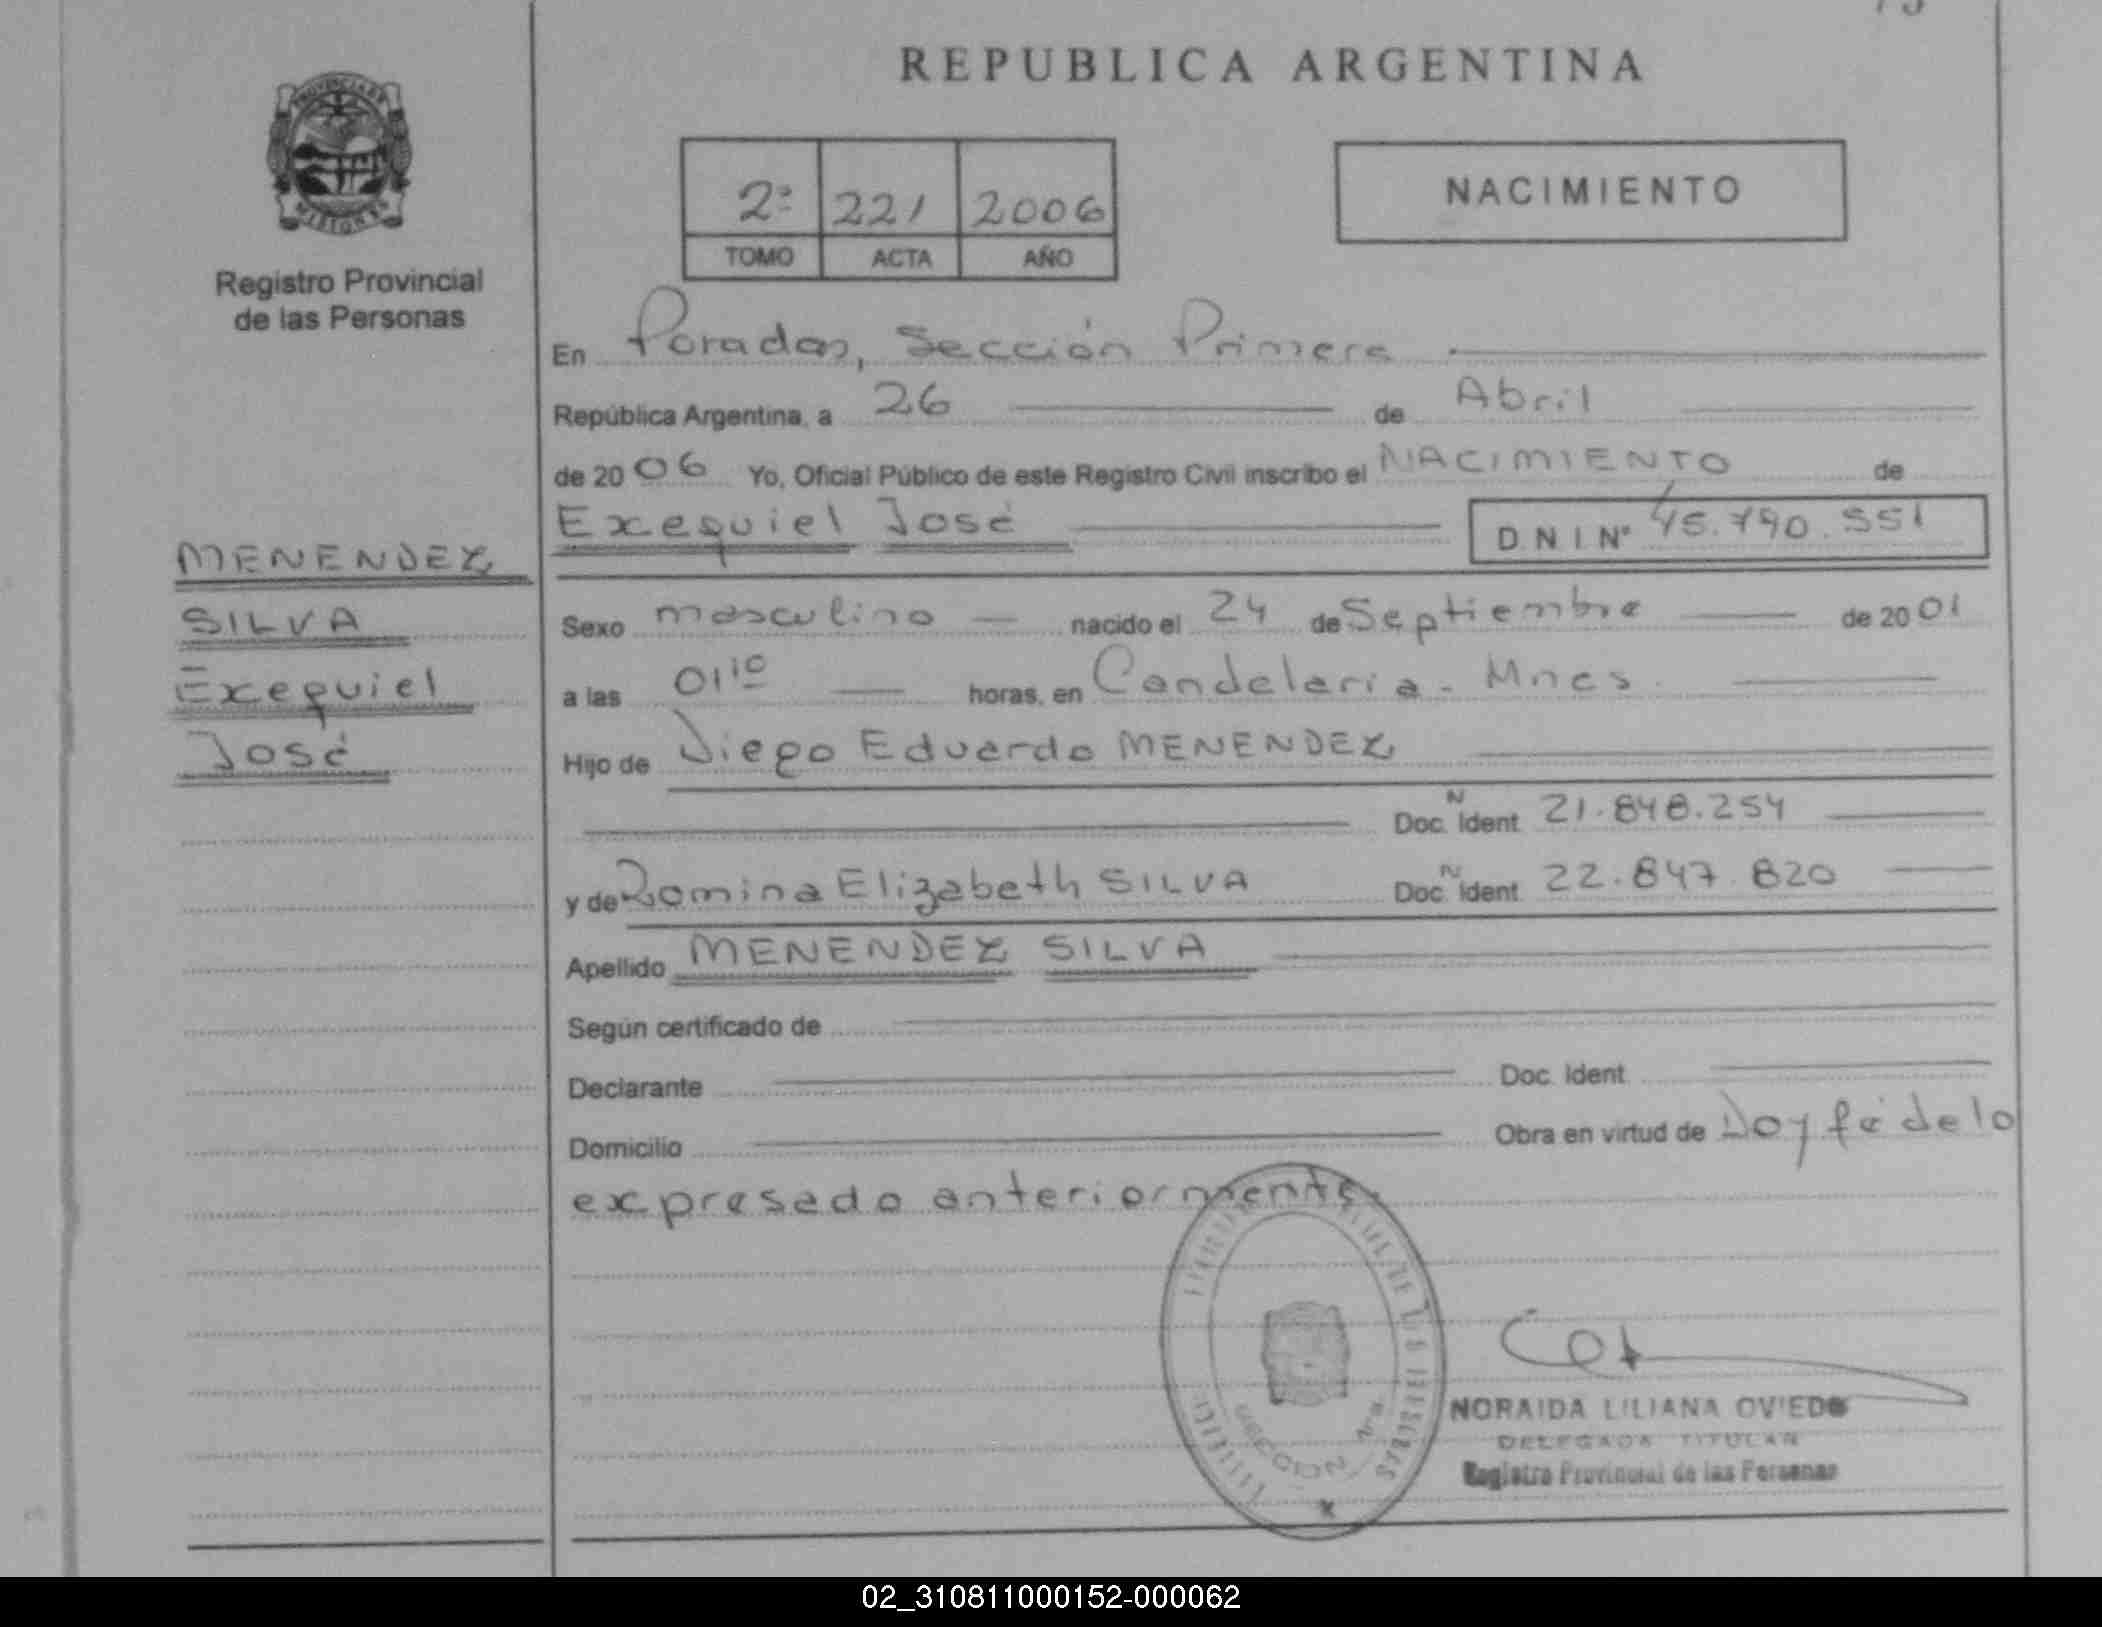 REPUBLICA ARGENTINA
2º 221 2006
TOMO ACTA AÑO
NACIMIENTO
PROVINCIA DE
MISIONES
Registro Provincial
de las Personas
En Posadas, Sección Primera
República Argentina, a 26 de Abril
de 2006 Yo, Oficial Público de este Registro Civil inscribo el NACIMIENTO de
Exequiel José D.N.I Nº 45.790.551
MENENDEZ
SILVA
Exequiel
José
Sexo masculino nacido el 24 de Septiembre de 2001
a las 01:10 horas, en Candelaria - Mnes.
Hijo de Diego Eduardo MENENDEZ
Doc. Ident. N 21.848.254
y de Romina Elizabeth SILVA Doc. Ident. N 22.847.820
Apellido MENENDEZ SILVA
Según certificado de
Declarante Doc. Ident.
Domicilio Obra en virtud de Doy fé de lo
expresado anteriormente.
NORAIDA LILIANA OVIEDO
DELEGADA TITULAR
Registro Provincial de las Personas
02_310811000152-000062